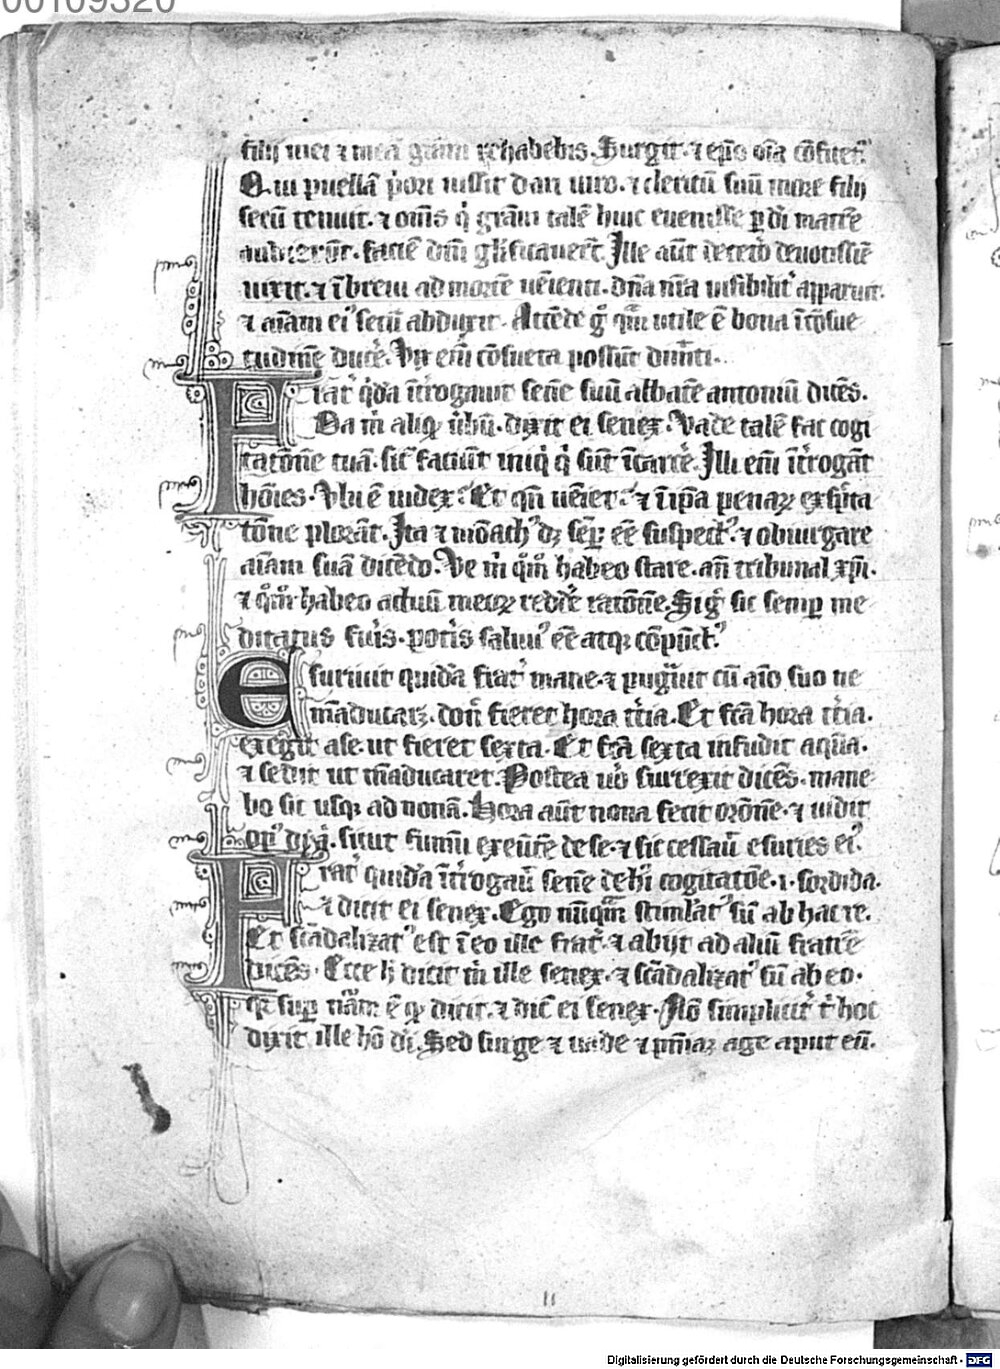 00109320
filij mei ⁊ meā grām rehabebis. Surgit. ⁊ ep̄o oīa cōfitet᷑.
Qui puellā dari iussit viro. ⁊ clericū suū more filij
secū tenuit. ⁊ om̄s q̇ grām talē huic euenisse ꝑ dī matrē
audierūt. dnm̄ gl̓ificauerūt. Ille aūt
uixit. ⁊ ī breui ad mortē ueniēti. dn̄a nr̄a uisibilit̓ apparuit.
⁊ aīam ei᷒ secū abduxit. Attēde g̊ qm̄ utile ē bona ī cōsue
tudinē ducē. Vix em̄ cōsueta possūt dimitti.
Frat̓ q̇da īt̓rogauit senē suū abbatē antoniū dicēs.
Da m̓ aliq̇ . dixit ei senex. Vade talē fac cogi
tatōnē tuā. sic̄ faciūt iniq̇ q̇ sūt ī carcē. Illi em̄ īt̓rogāt
hōies. Vbi ē iudex? Et qn̄ ueiet? ⁊ ī ip̄a penaꝝ expc̄ta
tōne plorāt. Ita ⁊ mōach᷒ dꝫ sēꝑ eē suspect᷒. ⁊ obiurgare
aīam suā dicēdo. Ve m̓ q̊m̊ habeo stare. an̄ tribunal xp̄i.
⁊ q̊m̊ habeo actuū meoꝝ reddē ratōnē. Si g̊ sic semꝑ me
ditatus fu̓is. pot̓is saluu᷒ eē atqꝫ cōpūct᷒.
Esuriuit quidā frat̓ mane. ⁊ pugn̄uit cū aīo suo ne
māducaꝝ. don̄ fieret hora t̓cia. Et fc̄a hora t̓cia.
exegit a se. ut fieret sexta. Et fc̄a sexta infudit aquā.
⁊ sedit ut māducaret. Postea ů surrexit dicēs. mane
bo sic usqꝫ ad nonā. Hora aūt nona fecit orōnē. ⁊ uidit
op᷒ . sicut fumū exeūtē de se. ⁊ sic cessau̓ esuries ei᷒.
Frat̓ quidā īt̓rogau̓ senē de cogitatōe. .i. sordida.
⁊ dicit ei senex. Ego nūqm̄ stimulat᷒ sū ab hac re.
Et scādalizat᷒ est ī eo ille frat̓. ⁊ abijt ad aliū fratrē
dicēs. Ecce h̄ dicit m̓ ille senex. ⁊ scādalizat᷒ sū ab eo.
qꝛ suꝑ nām ē qꝫ dicit. ⁊ dic̄ ei senex. Nō simplicit̓ t̓ hoc
dixit ille hō dī. Sed surge ⁊ uade ⁊ pn̄iaꝫ age aput eū.
11
Digitalisierung gefördert durch die Deutsche Forschungsgemeinschaft - DFG